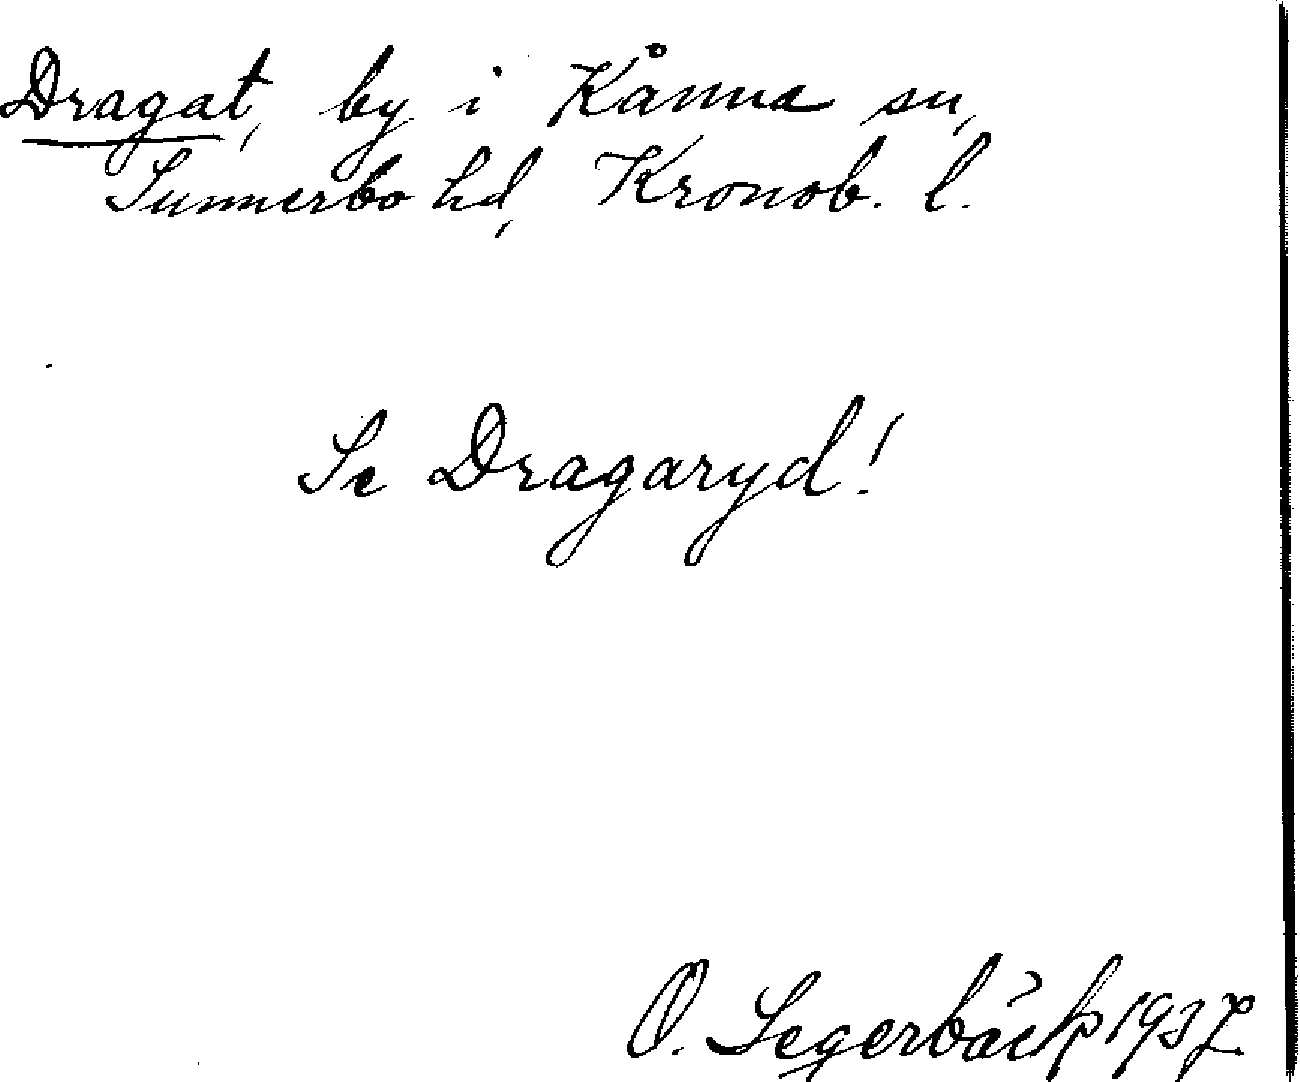 Dragat, by i Kånna sn,
Sunnerbo hd, Kronob. l.
Se Dragaryd!
O. Segerbäck 1937.